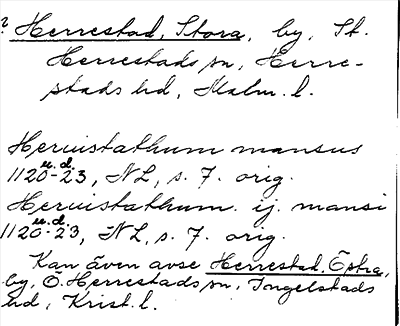 ? Herrestad, Stora, by, St.
Herrestads sn, Herre-
stads hd, Malm. l.
Heruistathum mansus
1120-23 u.d., NL, s. 7. orig.
Heruistathum. ij. mansi
1120-23 u.d., NL, s. 7. orig.
Kan även avse Herrestad, Östra,
by, Ö. Herrestads sn, Ingelstads
hd, Krist. l.